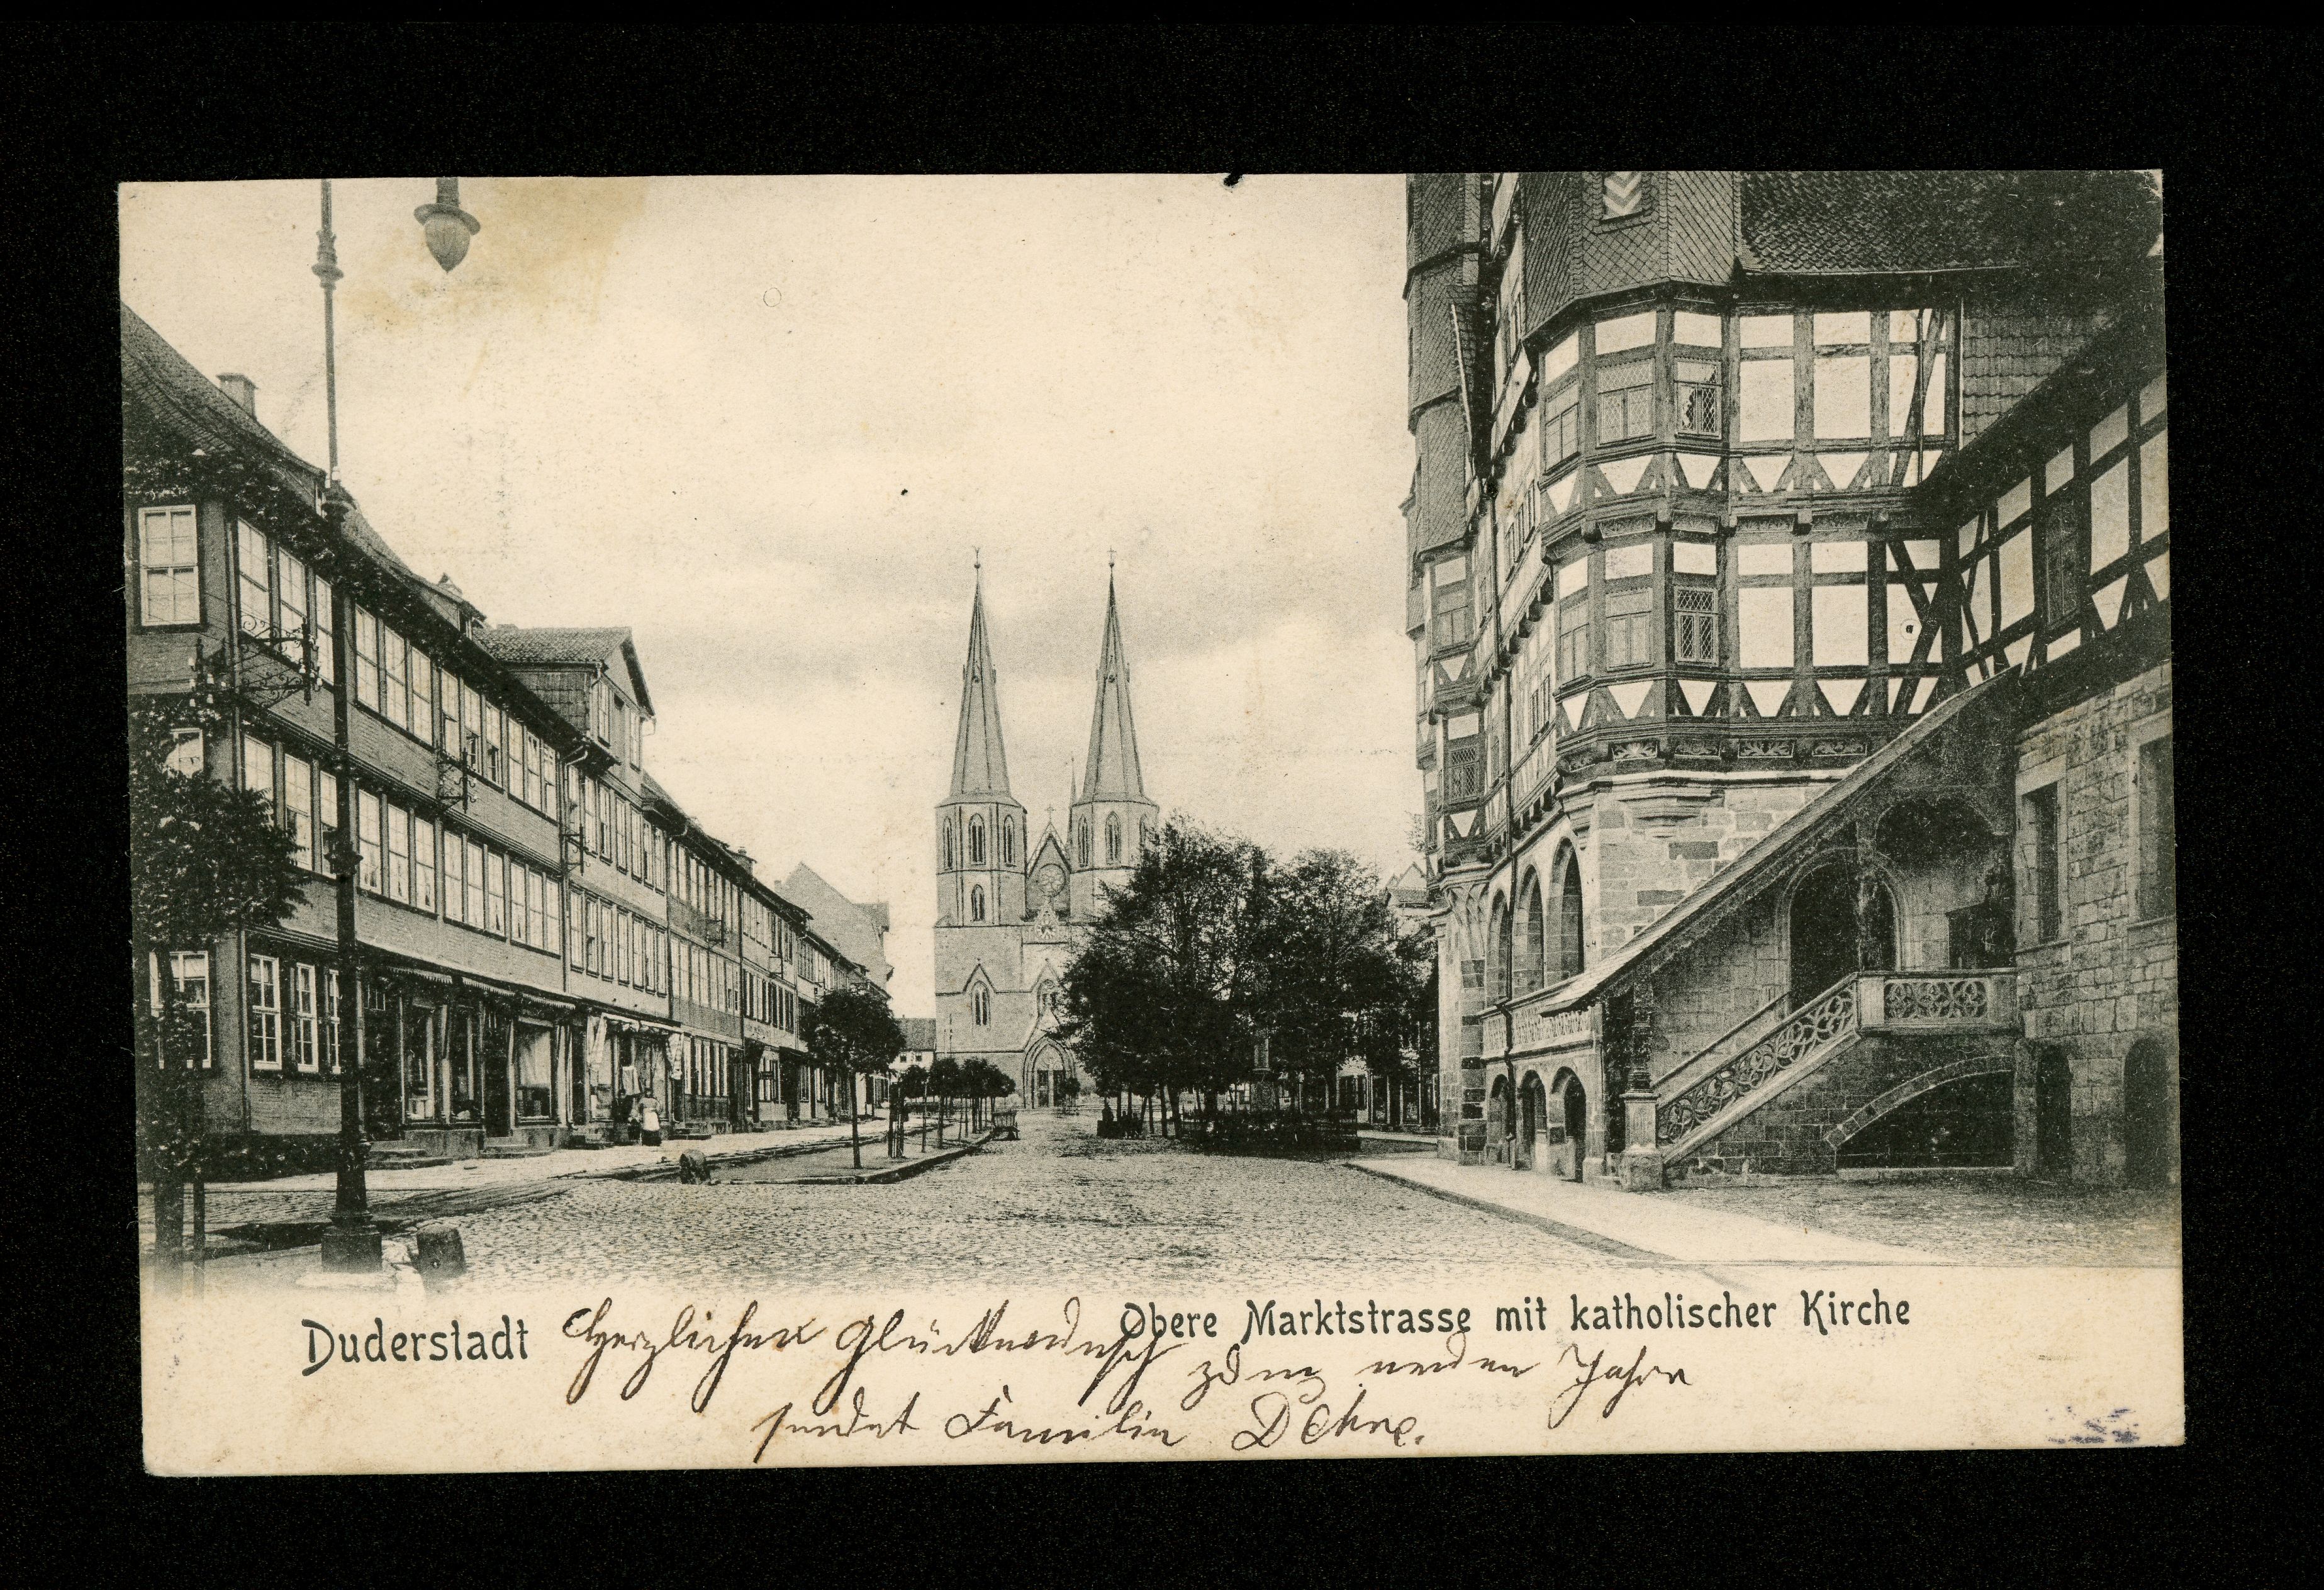 Duderstadt
Obere Marktstrasse mit katholischer Kirche
Herzlichen Glückwunsch zum neuen Jahre
sendet Familie Dehne.